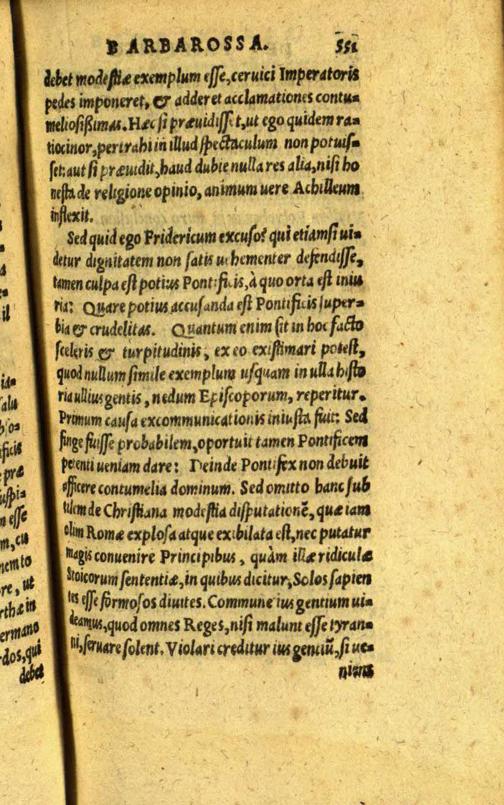 BARBAROSSA. 551
debet modestiæ exemplum esse, ceruici Imperatoris
pedes imponeret, & adderet acclamationes contu-
meliosißimas. Hæc si præuidisset, ut ego quidem ra-
tiocinor, pertrahi in illud spectaculum non potuis-
set: aut si præuidit, haud dubie nulla res alia, nisi ho
nesta de religione opinio, animum uere Achilleum
inflexit.
Sed quid ego Fridericum excuso? qui etiamsi ui-
detur dignitatem non satis uehementer defendisse,
tamen culpa est potius Pontificis, à quo orta est iniu
ria: Quare potius accusanda est Pontificis super-
bia & crudelitas. Quantum enim sit in hoc facto
sceleris & turpitudinis, ex eo existimari potest,
quod nullum simile exemplum usquam in ulla histo
ria ullius gentis, nedum Episcoporum, reperitur.
Primum causa excommunicationis iniusta fuit: Sed
finge fuisse probabilem, oportuit tamen Pontificem
petenti ueniam dare: Deinde Pontifex non debuit
officere contumelia dominum. Sed omitto hanc sub
tilem de Christiana modestia disputationē, quæ iam
olim Romæ explosa atque exibilata est, nec putatur
magis conuenire Principibus, quàm illæ ridiculæ
Stoicorum sententiæ, in quibus dicitur, Solos sapien
tes esse formosos diuites. Commune ius gentium ui-
deamus, quod omnes Reges, nisi malunt esse tyran-
ni, seruare solent. Violari creditur ius gentiū, si ue-
niens
il
ia-
salu
ficis
præ
uspi-
n esse
m, cū
nem to
ore, ut
rtha in
ermano
rdos, qui
debet